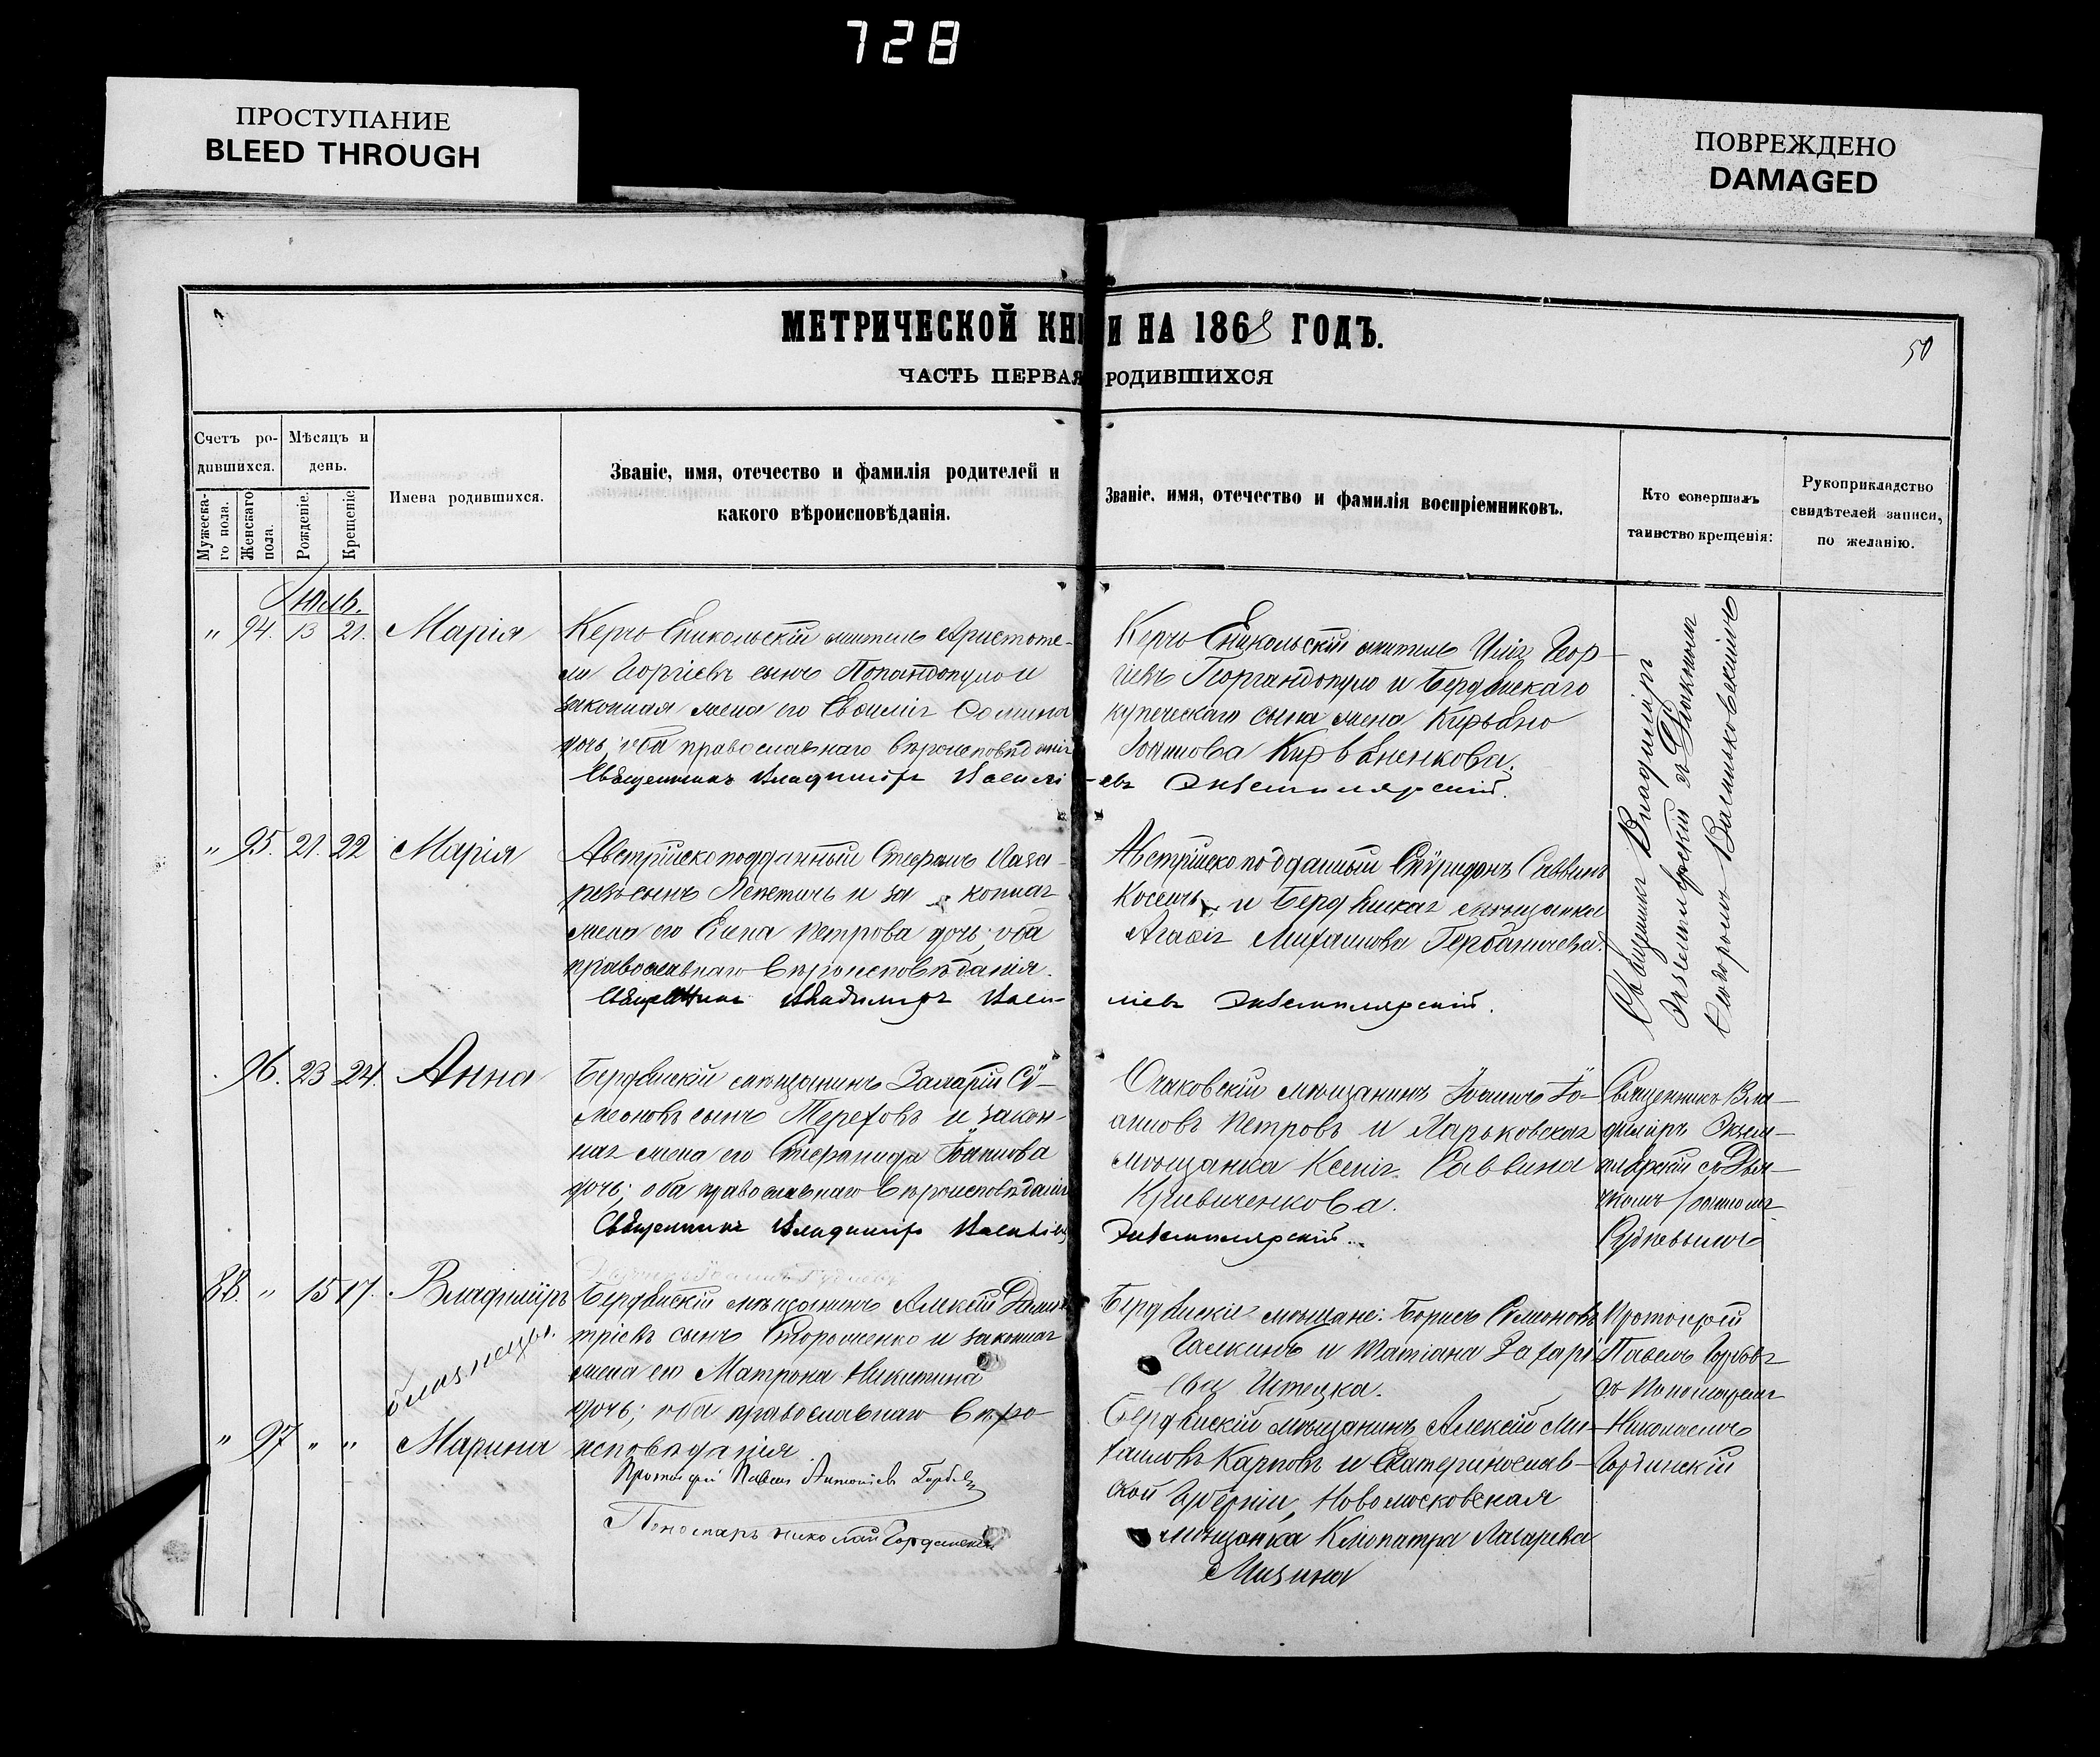 728
ПРОСТУПАНИЕ
BLEED THROUGH
ПОВРЕЖДЕНО
DAMAGED
МЕТРИЧЕСКОЙ КНИ И НА 1868 ГОДЪ.
50
ЧАСТЬ ПЕРВАЯ РОДИВШИХСЯ
Счетъ ро-
дившихся.
Мужеска-
го пола.
Женскаго
пола.
Мѣсяцъ и
день.
Рожденіе.
Крещеніе
Имена родившихся.
Званіе, имя, отечество и фамилія родителей и
какого вѣроисповѣданія.
Званіе, имя, отечество и фамилія воспріемниковъ.
Кто совершалъ
таинство крещенія:
Рукоприкладство
свидѣтелей записи,
по желанію.
Іюль.
" 94. 13 21. Марія
Керчь Еникольскій житель Аристоте-
ли Георгіевъ сынъ Попандопуло и
законная жена его Евѳимія
дочь, оба православнаго вѣроисповѣданія
Священникъ Владиміръ Василі
Керчь Еникольскій житель Илія Геор-
гіевъ Георгандопуло и Бердянскаго
купеческаго сына жена
-евъ Экземплярскій.
Священникъ Владиміръ
Экземплярскій съ Дьякономъ
" 95. 21. 22 Марія
Австрійскоподданный Стефанъ Лаза-
ревъ сынъ Лепетичь и за конная
жена его Елена Петрова дочь, оба
православнаго вѣроисповѣданія.
Священникъ Владиміръ Васи-
Австрійско подданный Спѵридонъ Саввинъ
Косичъ и Бердянская мѣщанка
Агаѳія Михаилова
ліевъ Экземплярскій.
96. 23 24. Анна
Бердянскій мѣщанинъ Захарій Сѵ-
меоновъ сынъ Тереховъ и закон-
ная жена его Стефанида Іоаннова
дочь; оба православнаго вѣроисповѣданія
Священникъ Владиміръ Васильевъ
Очаковскій мѣщанинъ Іоаннъ Іо-
анновъ Петровъ и Харьковская
мѣщанка Ксенія Саввина
Кривиченкова.
Экземплярскій.
Священникъ Вла-
диміръ Экзем-
плярскій съ Дья-
88. " 15 17. Владиміръ
близнецы.
Бердянскій мѣщанинъ Алексій Дими-
тріевъ сынъ Стороженко и законная
жена его Матрона Никитина
дочь; оба православнаго вѣро-
исповѣданія
Бердянскіе мѣщане: Борисъ Симеоновъ
Галкинъ и Татіана Захарі
ева
Протоіерей
Павелъ
съ Пономаремъ
Николаемъ
" 97 " " Марина
Протоіерей Павелъ Антоніевъ
Пономарь Николай
Бердянскій мѣщанинъ Алексій Ми-
хаиловъ Карповъ и Екатеринослав-
ской Губерніи, Новомосковская
мѣщанка Клеопатра Лазарева
Мизина